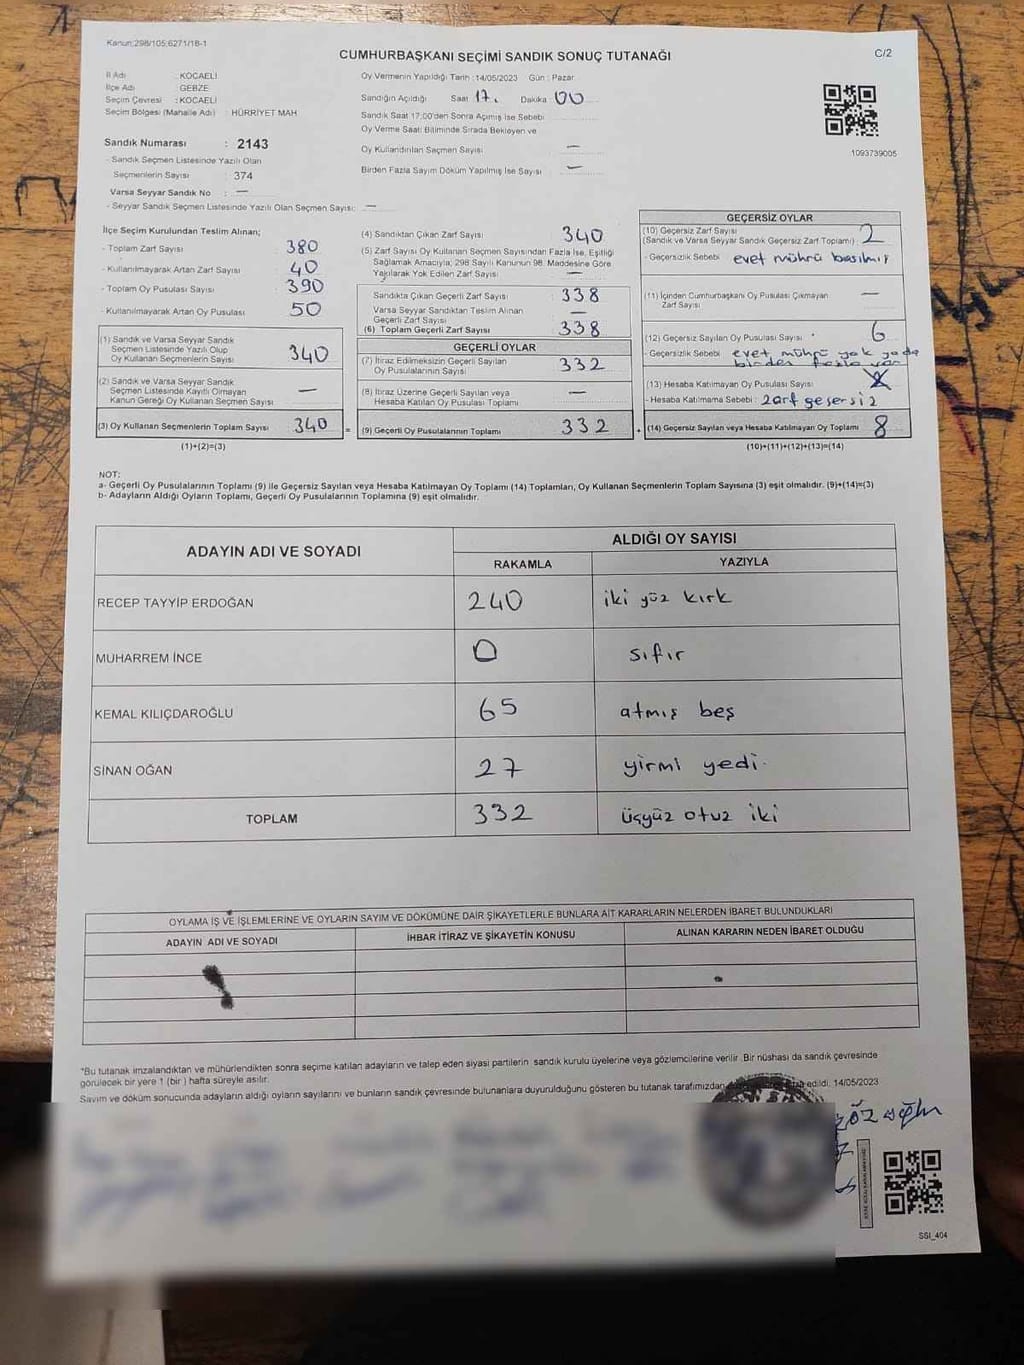 Kanun;298/105;6271/1B-1
CUMHURBAŞKANI SEÇİMİ SANDIK SONUÇ TUTANAĞI
C/2
İl Adı : KOCAELİ
İlçe Adı : GEBZE
Seçim Çevresi : KOCAELİ
Seçim Bölgesi (Mahalle Adı) : HÜRRİYET MAH
Sandık Numarası : 2143
- Sandık Seçmen Listesinde Yazılı Olan
Seçmenlerin Sayısı : 374
Varsa Seyyar Sandık No : —
- Seyyar Sandık Seçmen Listesinde Yazılı Olan Seçmen Sayısı: —
Oy Vermenin Yapıldığı Tarih : 14/05/2023 Gün : Pazar
Sandığın Açıldığı Saat 17. Dakika 00
Sandık Saat 17:00'den Sonra Açılmış İse Sebebi
Oy Verme Saati Bitiminde Sırada Bekleyen ve
Oy Kullandırılan Seçmen Sayısı —
Birden Fazla Sayım Döküm Yapılmış İse Sayısı —
1093739005
İlçe Seçim Kurulundan Teslim Alınan;
- Toplam Zarf Sayısı : 380
- Kullanılmayarak Artan Zarf Sayısı : 40
- Toplam Oy Pusulası Sayısı : 390
- Kullanılmayarak Artan Oy Pusulası : 50
(1) Sandık ve Varsa Seyyar Sandık
Seçmen Listesinde Yazılı Olup
Oy Kullanan Seçmenlerin Sayısı : 340
(2) Sandık ve Varsa Seyyar Sandık
Seçmen Listesinde Kayıtlı Olmayan
Kanun Gereği Oy Kullanan Seçmen Sayısı : —
(3) Oy Kullanan Seçmenlerin Toplam Sayısı : 340 =
(1)+(2)=(3)
(4) Sandıktan Çıkan Zarf Sayısı : 340
(5) Zarf Sayısı Oy Kullanan Seçmen Sayısından Fazla İse, Eşitliği
Sağlamak Amacıyla; 298 Sayılı Kanunun 98. Maddesine Göre
Yakılarak Yok Edilen Zarf Sayısı : —
Sandıkta Çıkan Geçerli Zarf Sayısı : 338
Varsa Seyyar Sandıktan Teslim Alınan
Geçerli Zarf Sayısı : —
(6) Toplam Geçerli Zarf Sayısı : 338
GEÇERLİ OYLAR
(7) İtiraz Edilmeksizin Geçerli Sayılan
Oy Pusulalarının Sayısı : 332
(8) İtiraz Üzerine Geçerli Sayılan veya
Hesaba Katılan Oy Pusulası Toplamı : —
(9) Geçerli Oy Pusulalarının Toplamı : 332 +
GEÇERSİZ OYLAR
(10) Geçersiz Zarf Sayısı
(Sandık ve Varsa Seyyar Sandık Geçersiz Zarf Toplamı) : 2
- Geçersizlik Sebebi : evet mührü basılmış
(11) İçinden Cumhurbaşkanı Oy Pusulası Çıkmayan
Zarf Sayısı : —
(12) Geçersiz Sayılan Oy Pusulası Sayısı : 6
- Geçersizlik Sebebi : evet mührü yok yada
birden fazla var
(13) Hesaba Katılmayan Oy Pusulası Sayısı :
- Hesaba Katılmama Sebebi : zarf geçersiz
(14) Geçersiz Sayılan veya Hesaba Katılmayan Oy Toplamı : 8
(10)+(11)+(12)+(13)=(14)
NOT:
a- Geçerli Oy Pusulalarının Toplamı (9) ile Geçersiz Sayılan veya Hesaba Katılmayan Oy Toplamı (14) Toplamları, Oy Kullanan Seçmenlerin Toplam Sayısına (3) eşit olmalıdır. (9)+(14)=(3)
b- Adayların Aldığı Oyların Toplamı, Geçerli Oy Pusulalarının Toplamına (9) eşit olmalıdır.
ADAYIN ADI VE SOYADI
ALDIĞI OY SAYISI
RAKAMLA YAZIYLA
RECEP TAYYİP ERDOĞAN 240 iki yüz kırk
MUHARREM İNCE 0 sıfır
KEMAL KILIÇDAROĞLU 65 atmış beş
SİNAN OĞAN 27 yirmi yedi.
TOPLAM 332 üçyüz otuz iki
OYLAMA İŞ VE İŞLEMLERİNE VE OYLARIN SAYIM VE DÖKÜMÜNE DAİR ŞİKAYETLERLE BUNLARA AİT KARARLARIN NELERDEN İBARET BULUNDUKLARI
ADAYIN ADI VE SOYADI İHBAR İTİRAZ VE ŞİKAYETİN KONUSU ALINAN KARARIN NEDEN İBARET OLDUĞU
*Bu tutanak imzalandıktan ve mühürlendikten sonra seçime katılan adayların ve talep eden siyasi partilerin sandık kurulu üyelerine veya gözlemcilerine verilir. Bir nüshası da sandık çevresinde
görülecek bir yere 1 (bir) hafta süreyle asılır.
Sayım ve döküm sonucunda adayların aldığı oyların sayılarını ve bunların sandık çevresinde bulunanlara duyurulduğunu gösteren bu tutanak tarafımızdan edildi. 14/05/2023
SSI_404